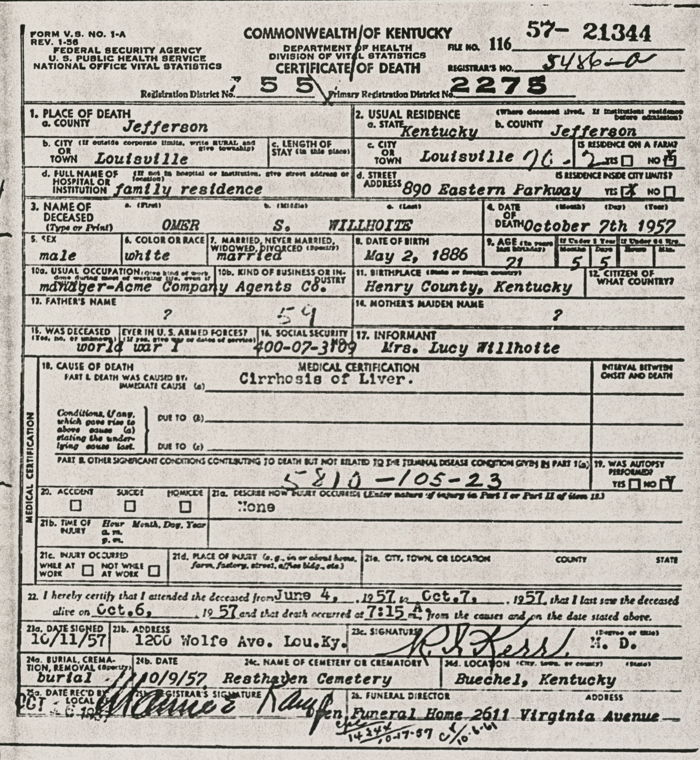 FORM V.S. NO. 1-A
REV. 1-56
FEDERAL SECURITY AGENCY
U. S. PUBLIC HEALTH SERVICE
NATIONAL OFFICE VITAL STATISTICS
COMMONWEALTH OF KENTUCKY
DEPARTMENT OF HEALTH
DIVISION OF VITAL STATISTICS
CERTIFICATE OF DEATH
FILE NO. 116 57- 21344
REGISTRAR'S NO. 5486-a
Registration District No. 755 Primary Registration District No. 2275
1. PLACE OF DEATH
a. COUNTY Jefferson
2. USUAL RESIDENCE (Where deceased lived. If institution: residence before admission)
a. STATE Kentucky b. COUNTY Jefferson
b. CITY (If outside corporate limits, write RURAL and give township)
OR TOWN Louisville
c. LENGTH OF STAY (in this place)
c. CITY OR TOWN Louisville
IS RESIDENCE ON A FARM?
YES NO
d. FULL NAME OF (If not in hospital or institution, give street address or location)
HOSPITAL OR INSTITUTION family residence
d. STREET ADDRESS 890 Eastern Parkway
IS RESIDENCE INSIDE CITY LIMITS?
YES X NO
3. NAME OF DECEASED (Type or Print)
a. (First) b. (Middle) c. (Last)
OMER S. WILLHOITE
4. DATE OF DEATH (Month) (Day) (Year)
October 7th 1957
5. SEX male
6. COLOR OR RACE white
7. MARRIED, NEVER MARRIED, WIDOWED, DIVORCED (Specify) married
8. DATE OF BIRTH May 2, 1886
9. AGE (In years last birthday) 21
If Under 1 Year Months Days 5 5
If Under 24 Hrs. Hours Min.
10a. USUAL OCCUPATION (Give kind of work done during most of working life, even if
10b. KIND OF BUSINESS OR INDUSTRY
manager-Acme Company Agents Co.
11. BIRTHPLACE (State or foreign country) Henry County, Kentucky
12. CITIZEN OF WHAT COUNTRY?
13. FATHER'S NAME ?
59
14. MOTHER'S MAIDEN NAME ?
15. WAS DECEASED EVER IN U.S. ARMED FORCES?
(Yes, no, or unknown) (If yes, give war or dates of service)
world war I
16. SOCIAL SECURITY 400-07-3109
17. INFORMANT Mrs. Lucy Willhoite
18. CAUSE OF DEATH
MEDICAL CERTIFICATION
INTERVAL BETWEEN ONSET AND DEATH
PART I. DEATH WAS CAUSED BY:
IMMEDIATE CAUSE (a) Cirrhosis of Liver.
Conditions, if any, which gave rise to above cause (a) stating the underlying cause last.
DUE TO (b)
DUE TO (c)
PART II. OTHER SIGNIFICANT CONDITIONS CONTRIBUTING TO DEATH BUT NOT RELATED TO THE TERMINAL DISEASE CONDITION GIVEN IN PART I(a)
5810-105-23
19. WAS AUTOPSY PERFORMED?
YES NO
MEDICAL CERTIFICATION
20. ACCIDENT SUICIDE HOMICIDE
21a. DESCRIBE HOW INJURY OCCURRED (Enter nature of injury in Part I or Part II of item 18.)
None
21b. TIME OF INJURY Hour Month, Day, Year
a. m.
p. m.
21c. INJURY OCCURRED
WHILE AT WORK NOT WHILE AT WORK
21d. PLACE OF INJURY (e.g., in or about home, farm, factory, street, office bldg., etc.)
21e. CITY, TOWN, OR LOCATION COUNTY STATE
22. I hereby certify that I attended the deceased from June 4, 1957 to Oct.7, 1957, that I last saw the deceased
alive on Oct.6, 1957 and that death occurred at 7:15 A.m., from the causes and on the date stated above.
23a. DATE SIGNED 10/11/57
23b. ADDRESS 1200 Wolfe Ave. Lou.Ky.
23c. SIGNATURE (Degree or title)
M. D.
24a. BURIAL, CREMATION, REMOVAL (Specify) burial
24b. DATE 10/9/57
24c. NAME OF CEMETERY OR CREMATORY Resthaven Cemetery
24d. LOCATION (City, town, or county) (State)
Buechel, Kentucky
25a. DATE REC'D BY LOCAL
OCT
REGISTRAR'S SIGNATURE
26. FUNERAL DIRECTOR ADDRESS
Funeral Home 2611 Virginia Avenue
14244
10-17-57
10-6-61